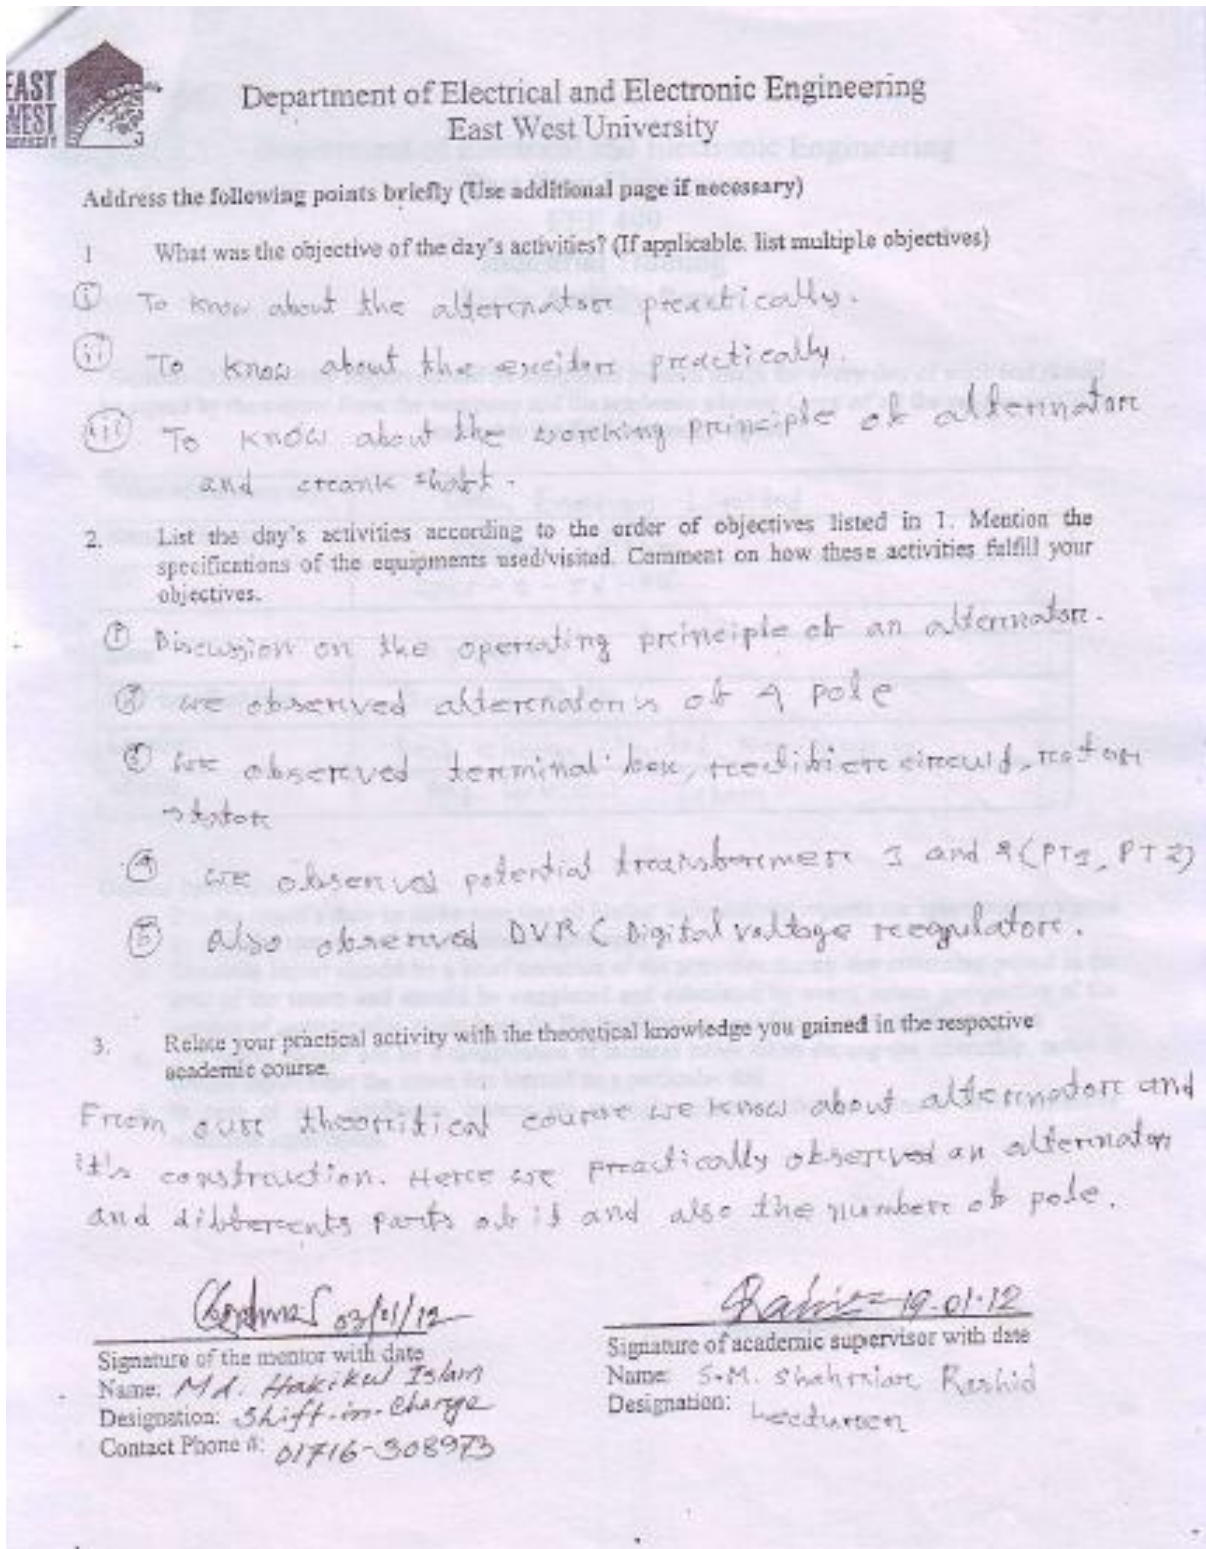 EAST
WEST
UNIVERSITY
Department of Electrical and Electronic Engineering
East West University
Address the following points briefly (Use additional page if necessary)
1 What was the objective of the day's activities? (If applicable, list multiple objectives)
(i) To know about the alternator practically.
(ii) To know about the exciter practically.
(iii) To know about the working principle of alternator
and crank shaft.
2. List the day's activities according to the order of objectives listed in 1. Mention the
specifications of the equipments used/visited. Comment on how these activities fulfill your
objectives.
(1) Discussion on the operating principle of an alternator.
(2) we observed alternator is of 4 pole
(3) we observed terminal box, rectifier circuit, rotor
stator
(4) we observed potential transformer 1 and 2 (PT1, PT2)
(5) Also observed DVR ( Digital voltage regulator.
3. Relate your practical activity with the theoretical knowledge you gained in the respective
academic course.
From our theoritical course we know about alternator and
it's construction. Here we practically observed an alternator
and differents parts of it and also the number of pole.
03/01/12
19.01.12
Signature of the mentor with date
Signature of academic supervisor with date
Name: Md. Hakikul Islam
Name: S.M. Shahriar Rashid
Designation: Shift-in-Charge
Designation: Lecturer
Contact Phone #: 01716-308973